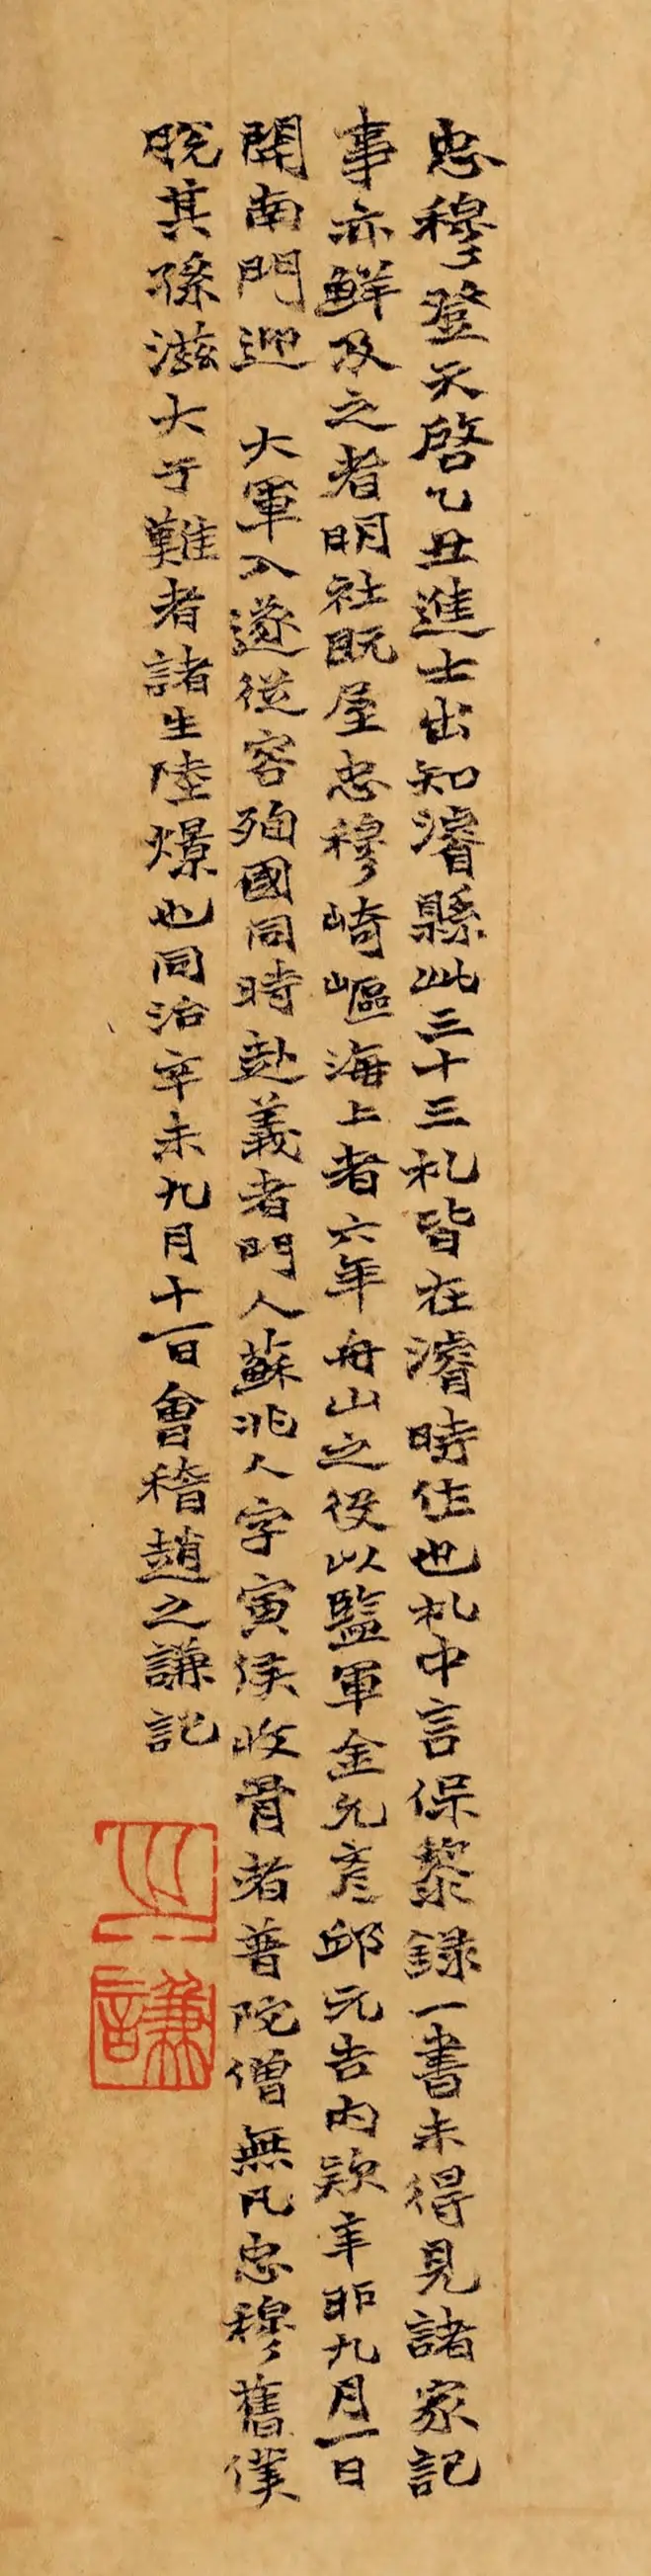 忠穆登天啓乙丑進士出知濬縣此三十三札皆在濬時作也札中言保黎錄一書未得見諸家記
事亦鮮及之者明社既屋忠穆崎嶇海上者六年舟山之役以監軍金允彥邱元吉內款辛卯九月一日
開南門迎 大軍入遂從容殉國同時赴義者門人蘇兆人字寅侯收骨者普陀僧無凡忠穆舊僕
脫其孫滋大于難者諸生陸燝也同治辛未九月十一日會稽趙之謙記
之謙